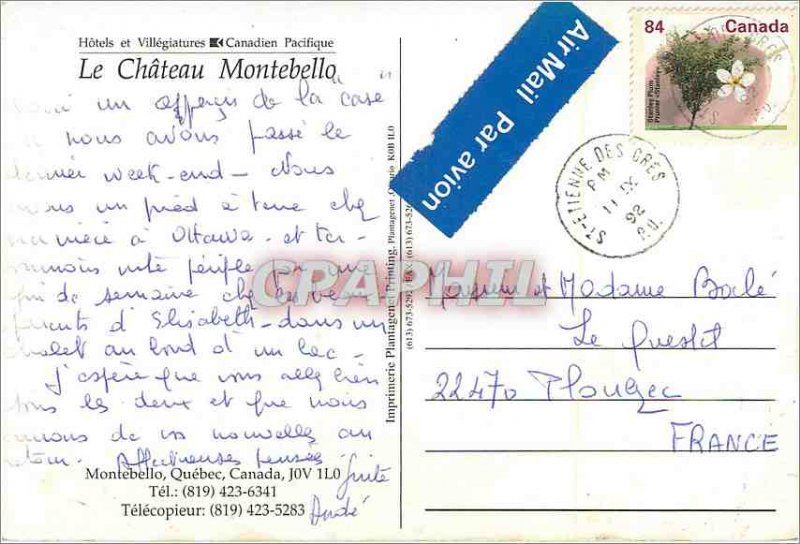 Hôtels et Villégiatures Canadien Pacifique
Le Château Montebello
un aperçu de la "case"
nous avons passé le
dernier week-end - Nous
un pied à terre chez
nièce à Ottawa - et ter-
minons notre périple par une
fin de semaine chez les
parents d'Elisabeth - dans un
chalet au bord d'un lac -
J'espère que vous allez bien
tous les deux et que nous
de vos nouvelles au
retour. Affectueuses pensées
André
Montebello, Québec, Canada, J0V 1L0
Tél.: (819) 423-6341
Télécopieur: (819) 423-5283
Imprimerie Plantagenet Printing, Plantagenet, Ontario K0B 1L0
(613) 673-5292 / FAX (613) 673-
Air Mail Par avion
84 Canada
Stanley Plum
Prunier «Stanley»
ST-ETIENNE DES GRES
PM
11 IX
92
P.Q.
CPAPHIL
Monsieur et Madame
Le
22470 Plouézec
FRANCE